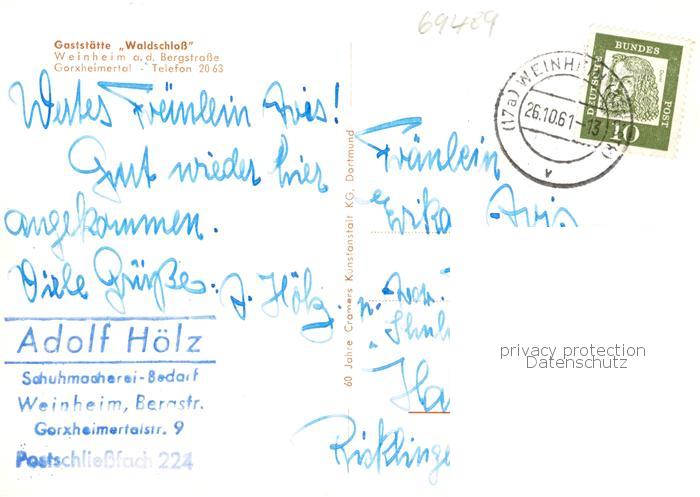 69489
Gaststätte „Waldschloß"
Weinheim a. d. Bergstraße
Gorxheimertal - Telefon 20 63
Wertes Fräulein Avis!
Gut wieder hier
angekommen.
Viele Grüße. A. Hölz.
Adolf Hölz
Schuhmacherei-Bedarf
Weinheim, Bergstr.
Gorxheimertalstr. 9
Postschließfach 224
60 Jahre Cramers Kunstanstalt KG, Dortmund
(17a) WEINHEIM
26.10.61-13
DEUTSCHE
BUNDES
POST
10
Fräulein
Erika Avis
Ha
Ricklinge
privacy protection
Datenschutz